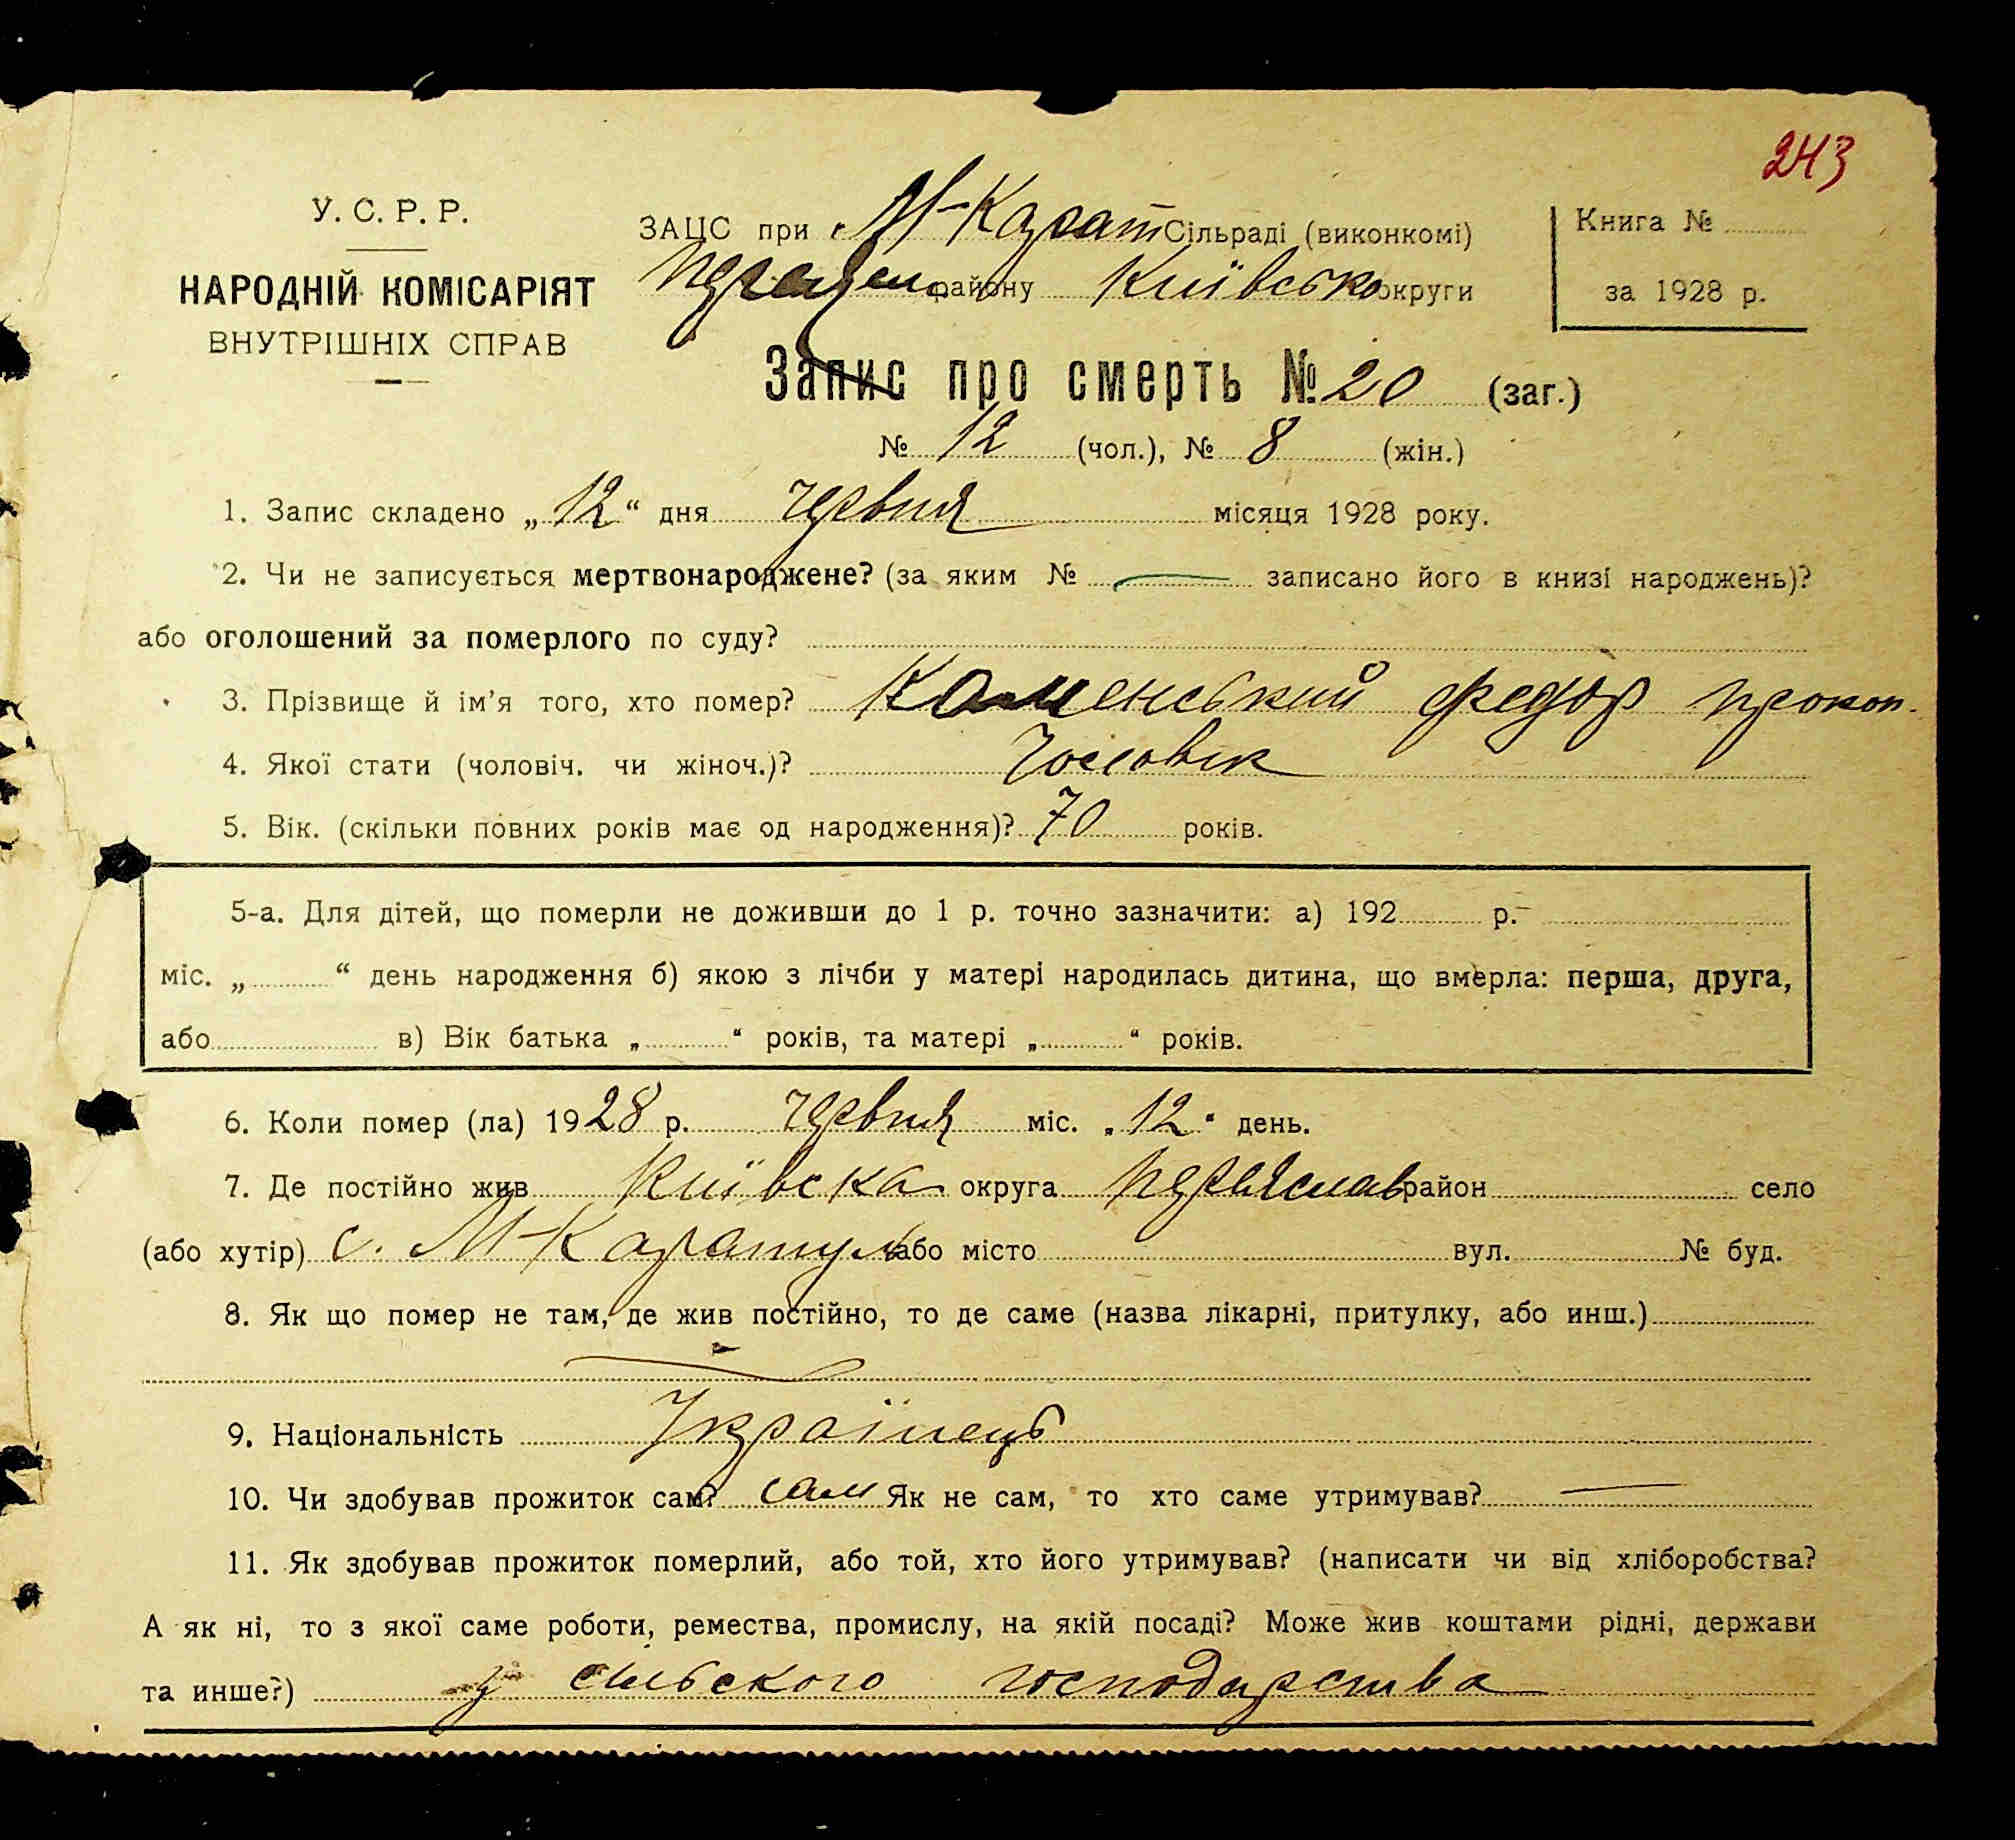 243
У. С. Р. Р.
НАРОДНІЙ КОМІСАРІЯТ
ВНУТРІШНІХ СПРАВ
ЗАЦС при М-Карат Сільраді (виконкомі)
району Київсько округи
Книга №
за 1928 р.
Запис про смерть № 20 (заг.)
№ 12 (чол.), № 8 (жін.)
1. Запис складено „12“ дня червня місяця 1928 року.
2. Чи не записується мертвонароджене? (за яким № — записано його в книзі народжень)?
або оголошений за померлого по суду?
3. Прізвище й ім’я того, хто помер? Каменський Федор Прокоп.
4. Якої стати (чоловіч. чи жіноч.)? Чоловік
5. Вік. (скільки повних років має од народження)? 70 років.
5-а. Для дітей, що померли не доживши до 1 р. точно зазначити: а) 192 р.
міс. „ “ день народження б) якою з лічби у матері народилась дитина, що вмерла: перша, друга,
або в) Вік батька „ “ років, та матері „ “ років.
6. Коли помер (ла) 1928 р. червня міс. „12“ день.
7. Де постійно жив Київска округа Переяслав район село
(або хутір) с. М-Каратуль або місто вул. № буд.
8. Як що помер не там, де жив постійно, то де саме (назва лікарні, притулку, або инш.)
9. Національність Українець
10. Чи здобував прожиток сам? сам Як не сам, то хто саме утримував? —
11. Як здобував прожиток померлий, або той, хто його утримував? (написати чи від хліборобства?
А як ні, то з якої саме роботи, ремества, промислу, на якій посаді? Може жив коштами рідні, держави
та инше?) з сільского господарства